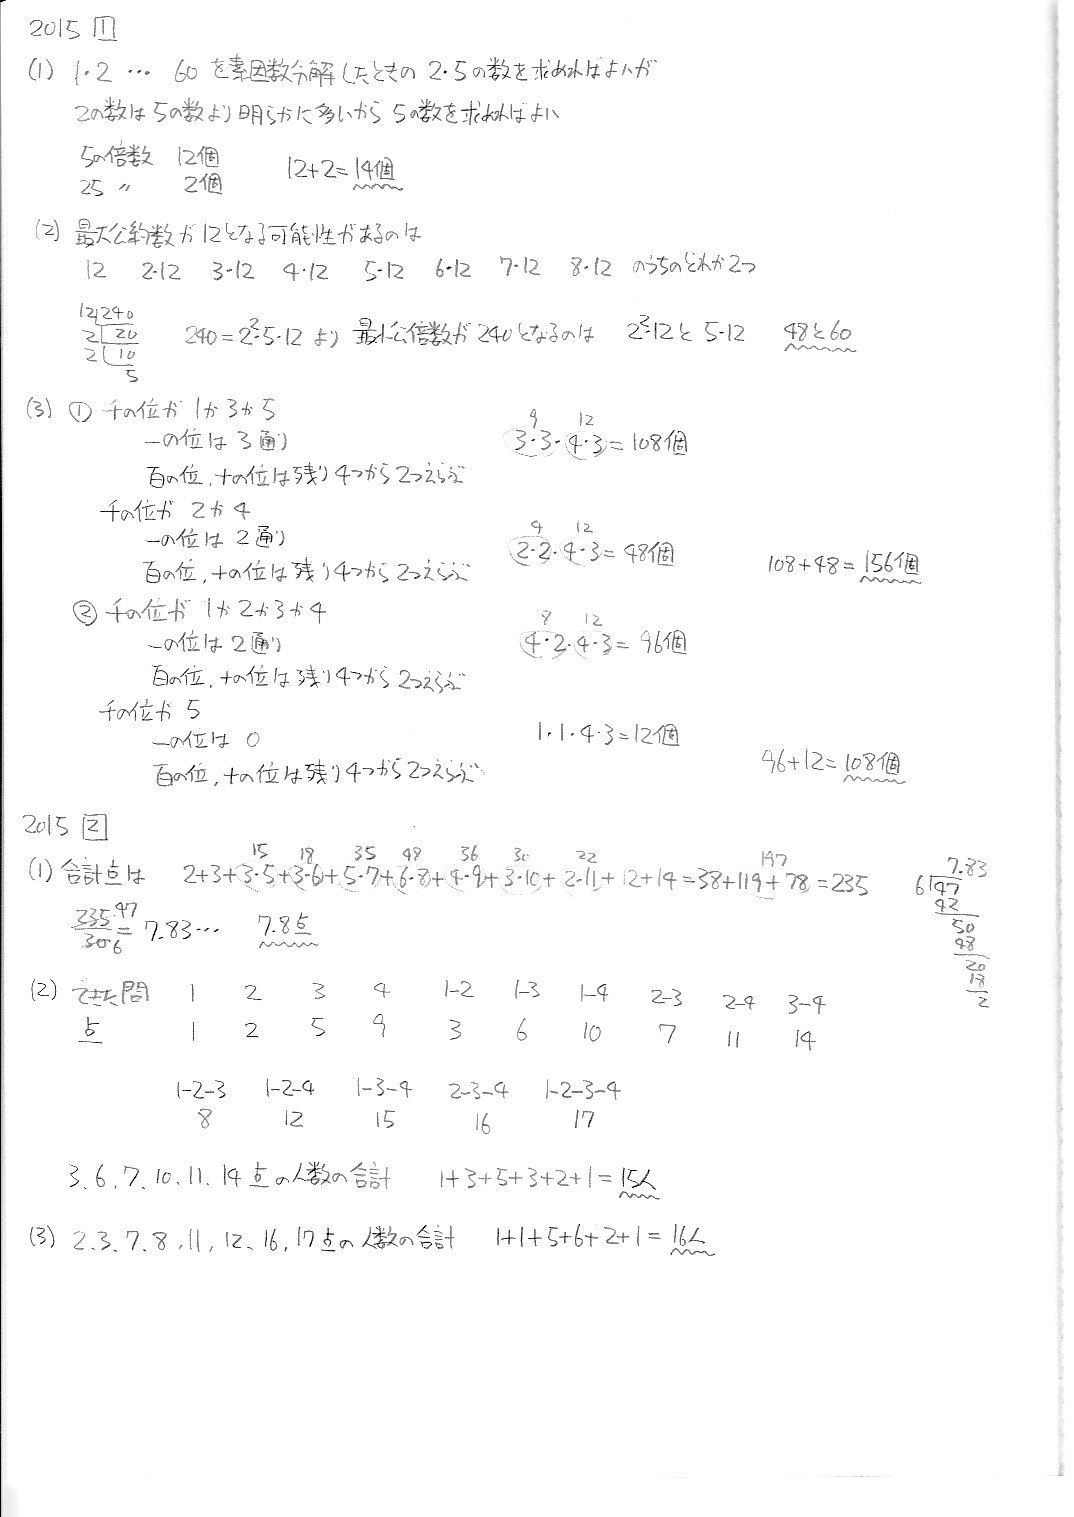 2015 1
(1) 1・2 … 60 を素因数分解したときの 2・5の数を求めればよいが
2の数は5の数より明らかに多いから 5の数を求めればよい
5の倍数 12個
25 〃 2個
12+2=14個
(2) 最大公約数が12となる可能性があるのは
12 2・12 3・12 4・12 5・12 6・12 7・12 8・12 のうちのどれか2つ
12)240
2)20
2)10
5
240=2²・5・12 より 最小公倍数が240となるのは 2²・12と5・12 48と60
(3) ① 千の位が 1か3か5
一の位は 3通り
9 12
3・3・4・3=108個
百の位,十の位は残り4つから2つえらぶ
千の位が 2か4
一の位は 2通り
4 12
2・2・4・3=48個
百の位,十の位は残り4つから2つえらぶ
108+48=156個
② 千の位が 1か2か3か4
一の位は 2通り
8 12
4・2・4・3=96個
百の位,十の位は残り4つから2つえらぶ
千の位が 5
一の位は 0
1・1・4・3=12個
百の位,十の位は残り4つから2つえらぶ
96+12=108個
2015 2
15 18 35 48 36 30 22 197
(1) 合計点は 2+3+3・5+3・6+5・7+6・8+4・9+3・10+2・11+12+14=38+119+78=235
7.83
6)47
42
50
48
20
18
2
235 47
30 6
= 7.83… 7.8点
(2) できた問 1 2 3 4 1-2 1-3 1-4 2-3 2-4 3-4
点 1 2 5 9 3 6 10 7 11 14
1-2-3 1-2-4 1-3-4 2-3-4 1-2-3-4
8 12 15 16 17
3、6、7、10、11、14点の人数の合計 1+3+5+3+2+1=15人
(3) 2、3、7、8、11、12、16、17点の人数の合計 1+1+5+6+2+1=16人